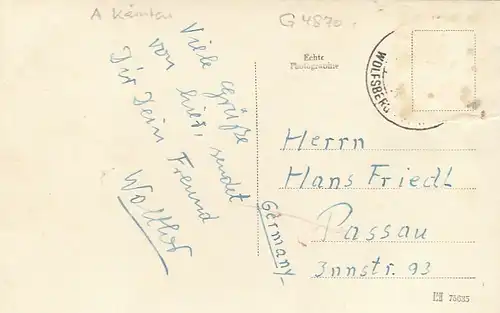 A Kärnten
G 4870.
Echte
Photographie
WOLFSBERG
Viele Grüße
von hier, sendet
Dir Dein Freund
Walther
Herrn
Hans Friedl
Passau
Innstr. 93
Germany
75035